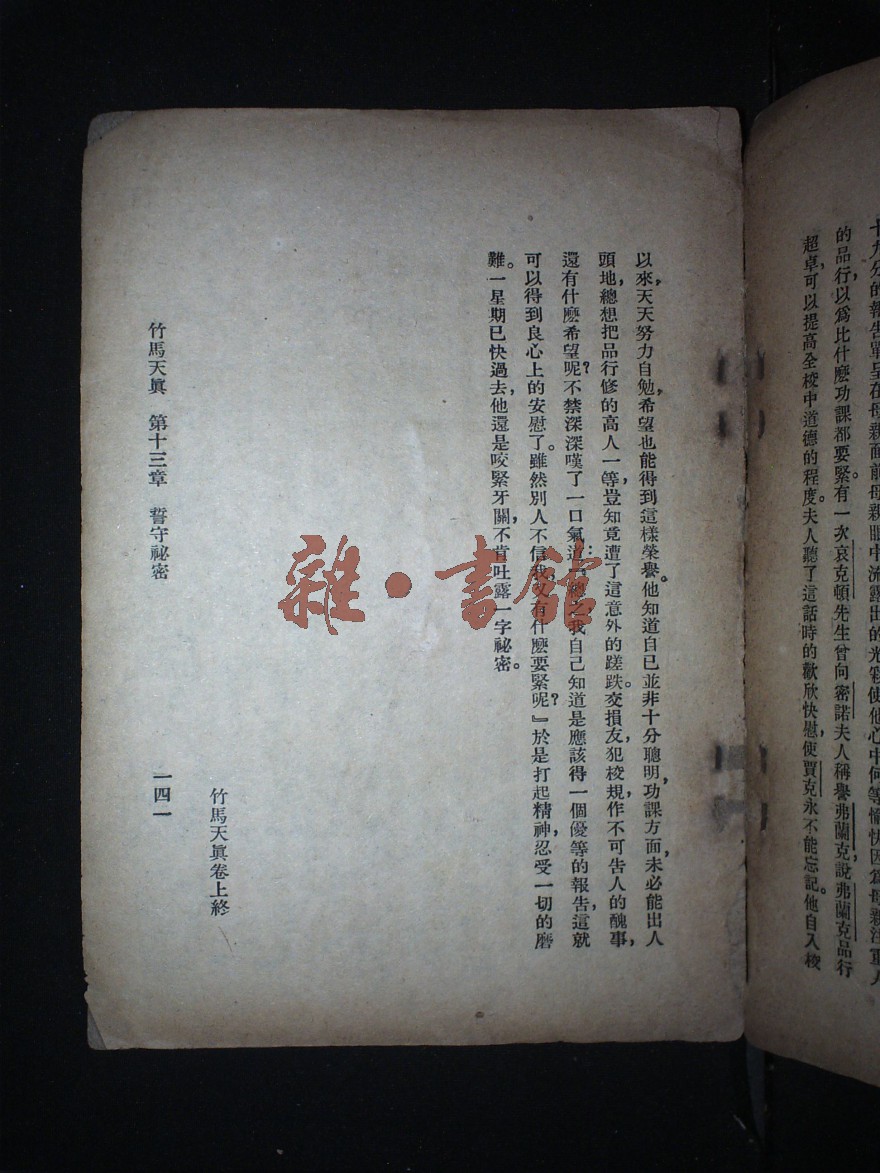 十九分的報告單呈在母親面前母親眼中流露出的光彩使他心中何等愉快因爲母親注重人
的品行，以爲比什麽功課都要緊。有一次哀克頓先生曾向密諾夫人稱譽弗蘭克，說弗蘭克品行
超卓，可以提高全校中道德的程度。夫人聽了這話時的歡欣快慰，使賈克永不能忘記。他自入校
以來，天天努力自勉，希望也能得到這樣榮譽。他知道自已並非十分聰明，功課方面，未必能出人
頭地，總想把品行修的高人一等，豈知竟遭了這意外的蹉跌。交損友，犯校規，作不可告人的醜事，
還有什麽希望呢？不禁深深嘆了一口氣道：『總之，我自己知道是應該得一個優等的報告，這就
可以得到良心上的安慰了。雖然別人不信我，又有什麽要緊呢？』於是打起精神，忍受一切的磨
難。一星期已快過去，他還是咬緊牙關，不肯吐露一字祕密。
竹馬天眞卷上終
竹馬天眞　第十三章　誓守祕密
一四一
雜·書館